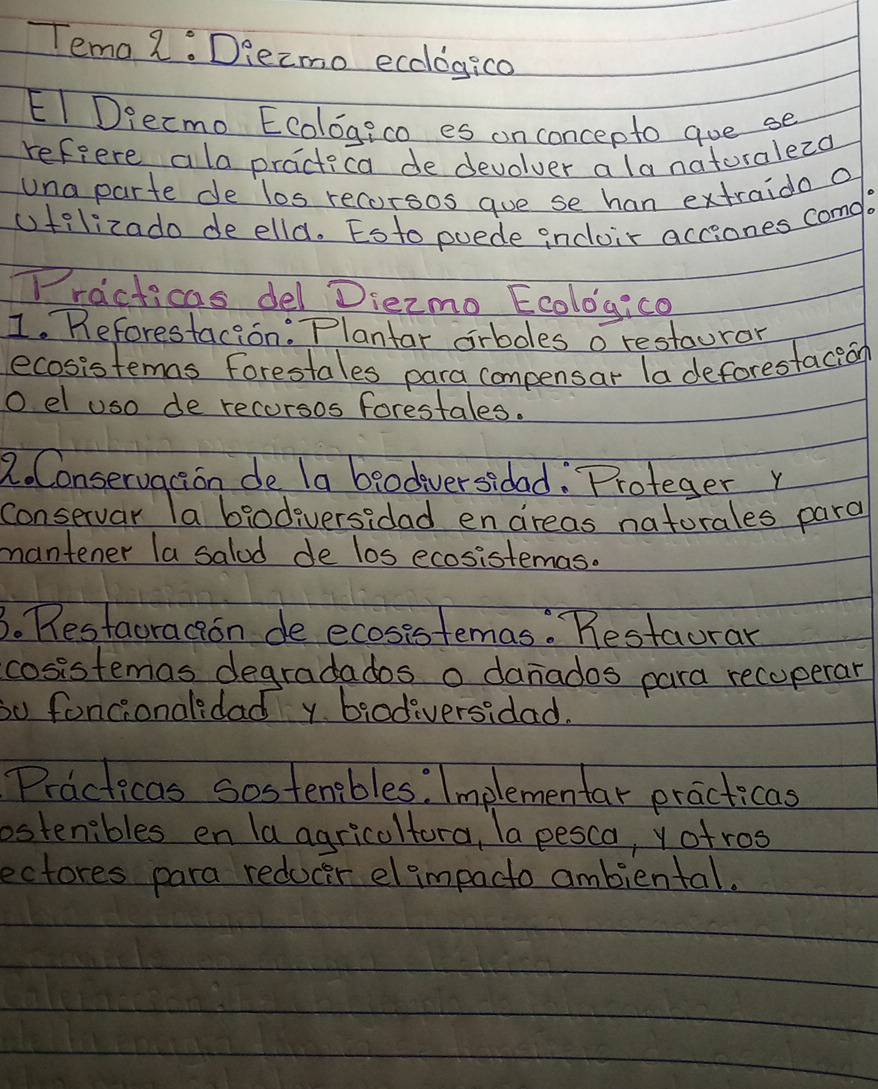 Tema 2: Diezmo ecológico
El Diezmo Ecológico es un concepto que se
refiere a la práctica de devolver a la naturaleza
una parte de los recursos que se han extraído o
utilizado de ella. Esto puede incluir acciones como:
Prácticas del Diezmo Ecológico
1. Reforestación: Plantar árboles o restaurar
ecosistemas forestales para compensar la deforestación
o el uso de recursos forestales.
2. Conservación de la biodiversidad: Proteger y
conservar la biodiversidad en áreas naturales para
mantener la salud de los ecosistemas.
3. Restauración de ecosistemas: Restaurar
cosistemas degradados o dañados para recuperar
su funcionalidad y biodiversidad.
. Prácticas sostenibles: Implementar prácticas
ostenibles en la agricultura, la pesca, y otros
ectores para reducir el impacto ambiental.